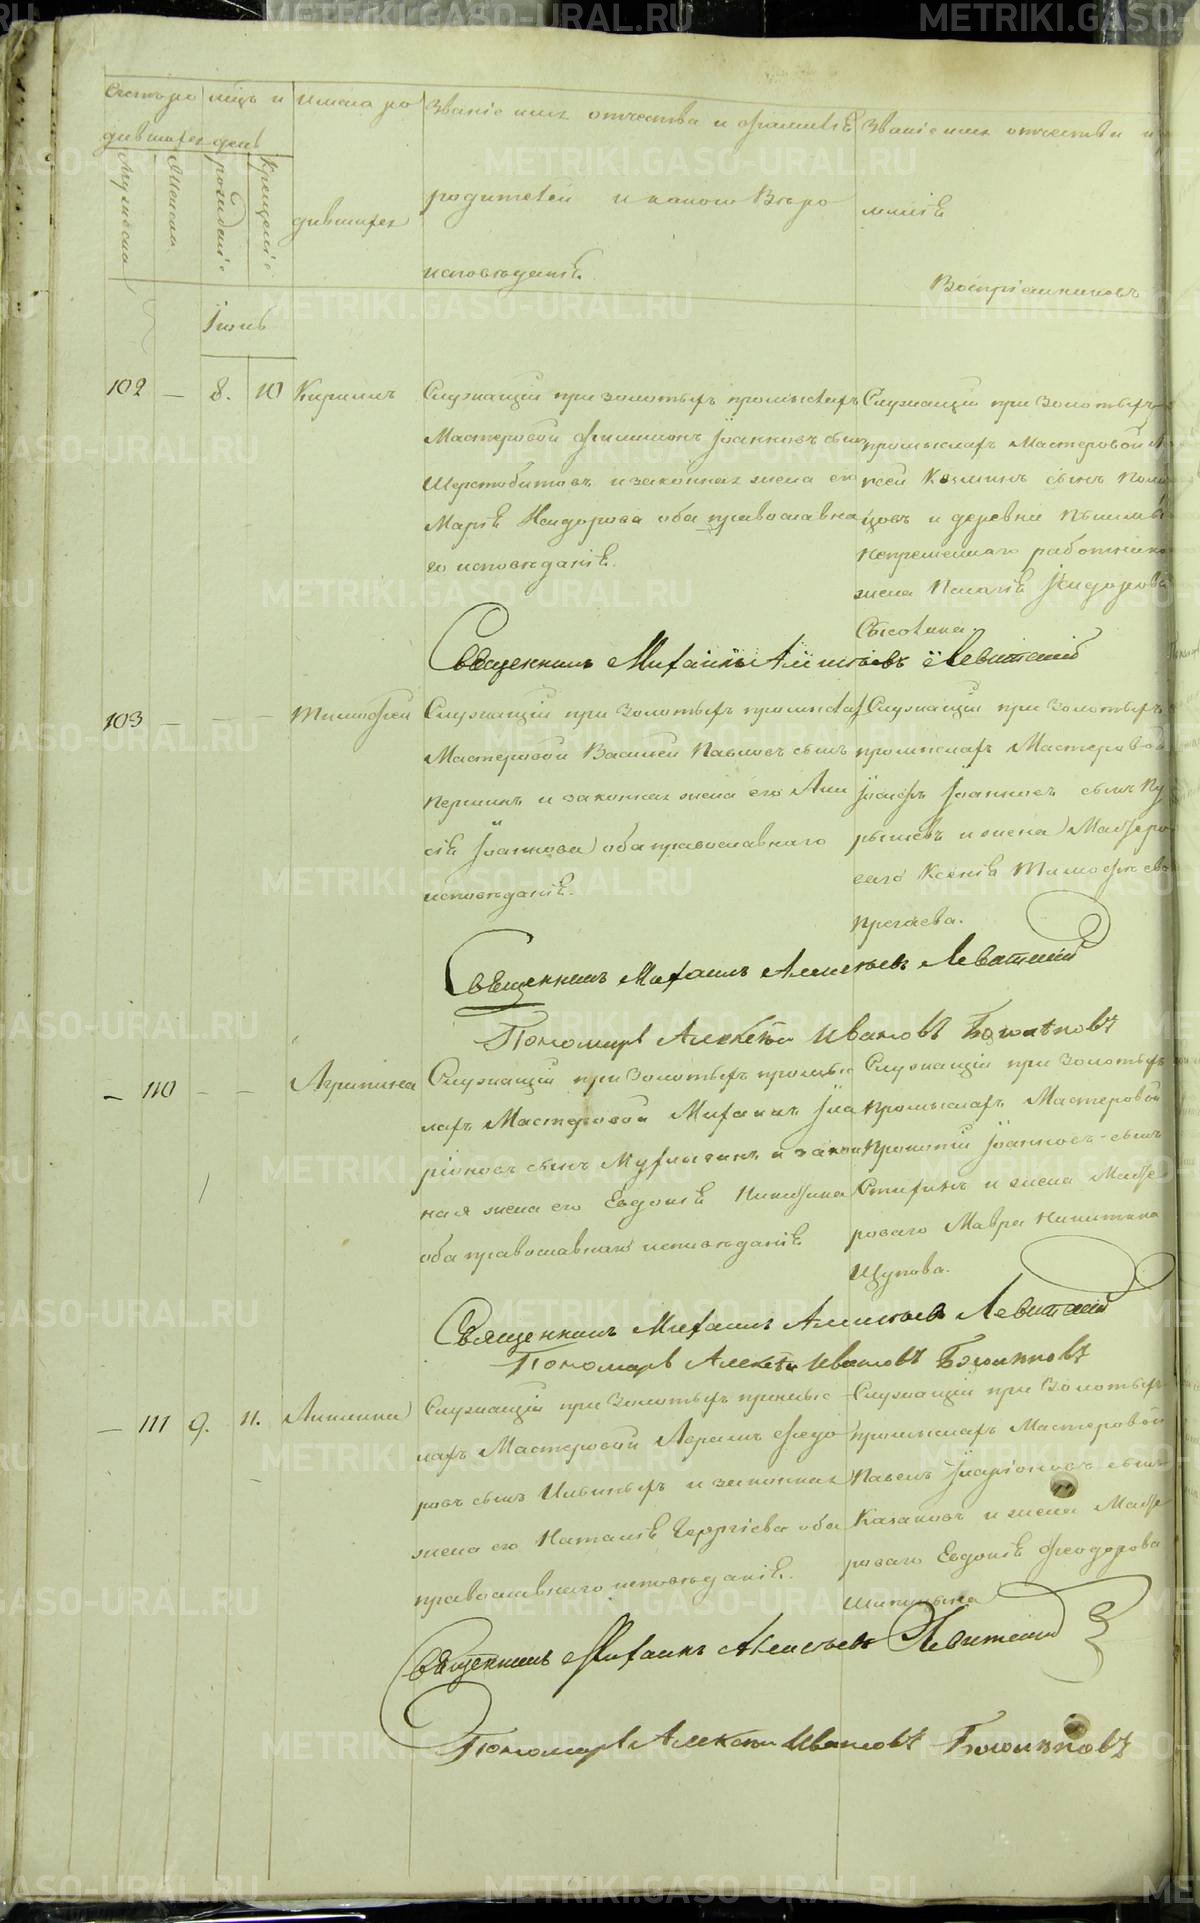 Счетъ ро
дившихся
мѣсяцъ и
день
Имена ро
дившихся
Званіе имя отчество и фамилія
родителей и какого вѣро
исповѣданія
Званіе имя отчество и
фамилія
Воспріемниковъ
Мужеска
Женска
рожденіе
крещеніе
Іюнь
102 — 8. 10 Кириллъ
Служащій при золотыхъ промыслахъ
Мастеровой Филимонъ Іоанновъ сынъ
Шерстобитовъ и законная жена его
Марія Исидорова оба православна
го исповѣданія.
Служащій при Золотыхъ
промыслахъ Мастеровой
Козминъ сынъ
цовъ и деревни
непремѣннаго работника
жена Исидорова
Сысолина.
Священникъ Михаилъ Алексѣевъ Левитскій
103 — — — Тимофей
Служащій при Золотыхъ промыслах
Мастеровой Василей Павловъ сынъ
Першинъ и законная жена его Ана
сія Іоаннова оба православнаго
исповѣданія.
Служащій при Золотыхъ
промыслахъ Мастеровой
Іосифъ Іоанновъ сынъ Пу
рышевъ и жена Мастеро
ваго Ксенія Тимофѣева
Пргаева.
Священникъ Михаилъ Алексѣевъ Левитскій
Пономарь Алексѣй Ивановъ Боголѣповъ
— 110 — — Агрипина
Служащій при Золотыхъ промыс
лахъ Мастеровой Михаилъ Ила
ріоновъ сынъ и закон
ная жена его Евдокія Никитина
оба православнаго исповѣданія
Служащій при Золотыхъ
Промыслахъ Мастеровой
Прокопій Іоанновъ сынъ
и жена Масте
роваго Мавра Никитина
Щупова.
Священникъ Михаилъ Алексѣевъ Левитскій
Пономарь Алексѣй Ивановъ Боголѣповъ
— 111 9. 11. Акилина
Служащій при Золотыхъ промыс
лахъ Мастеровой Аврамъ Федо
ровъ сынъ Ильиныхъ и законная
жена его Наталія Георгіева оба
православнаго исповѣданія.
Служащій при Золотыхъ
промыслахъ Мастеровой
Павелъ Иларіоновъ сынъ
Казаковъ и жена Масте
роваго Евдокія Феодорова
Шипицына
Священникъ Михаилъ Алексѣевъ Левитскій
Пономарь Алексѣй Ивановъ Боголѣповъ
METRIKI.GASO-URAL.RU